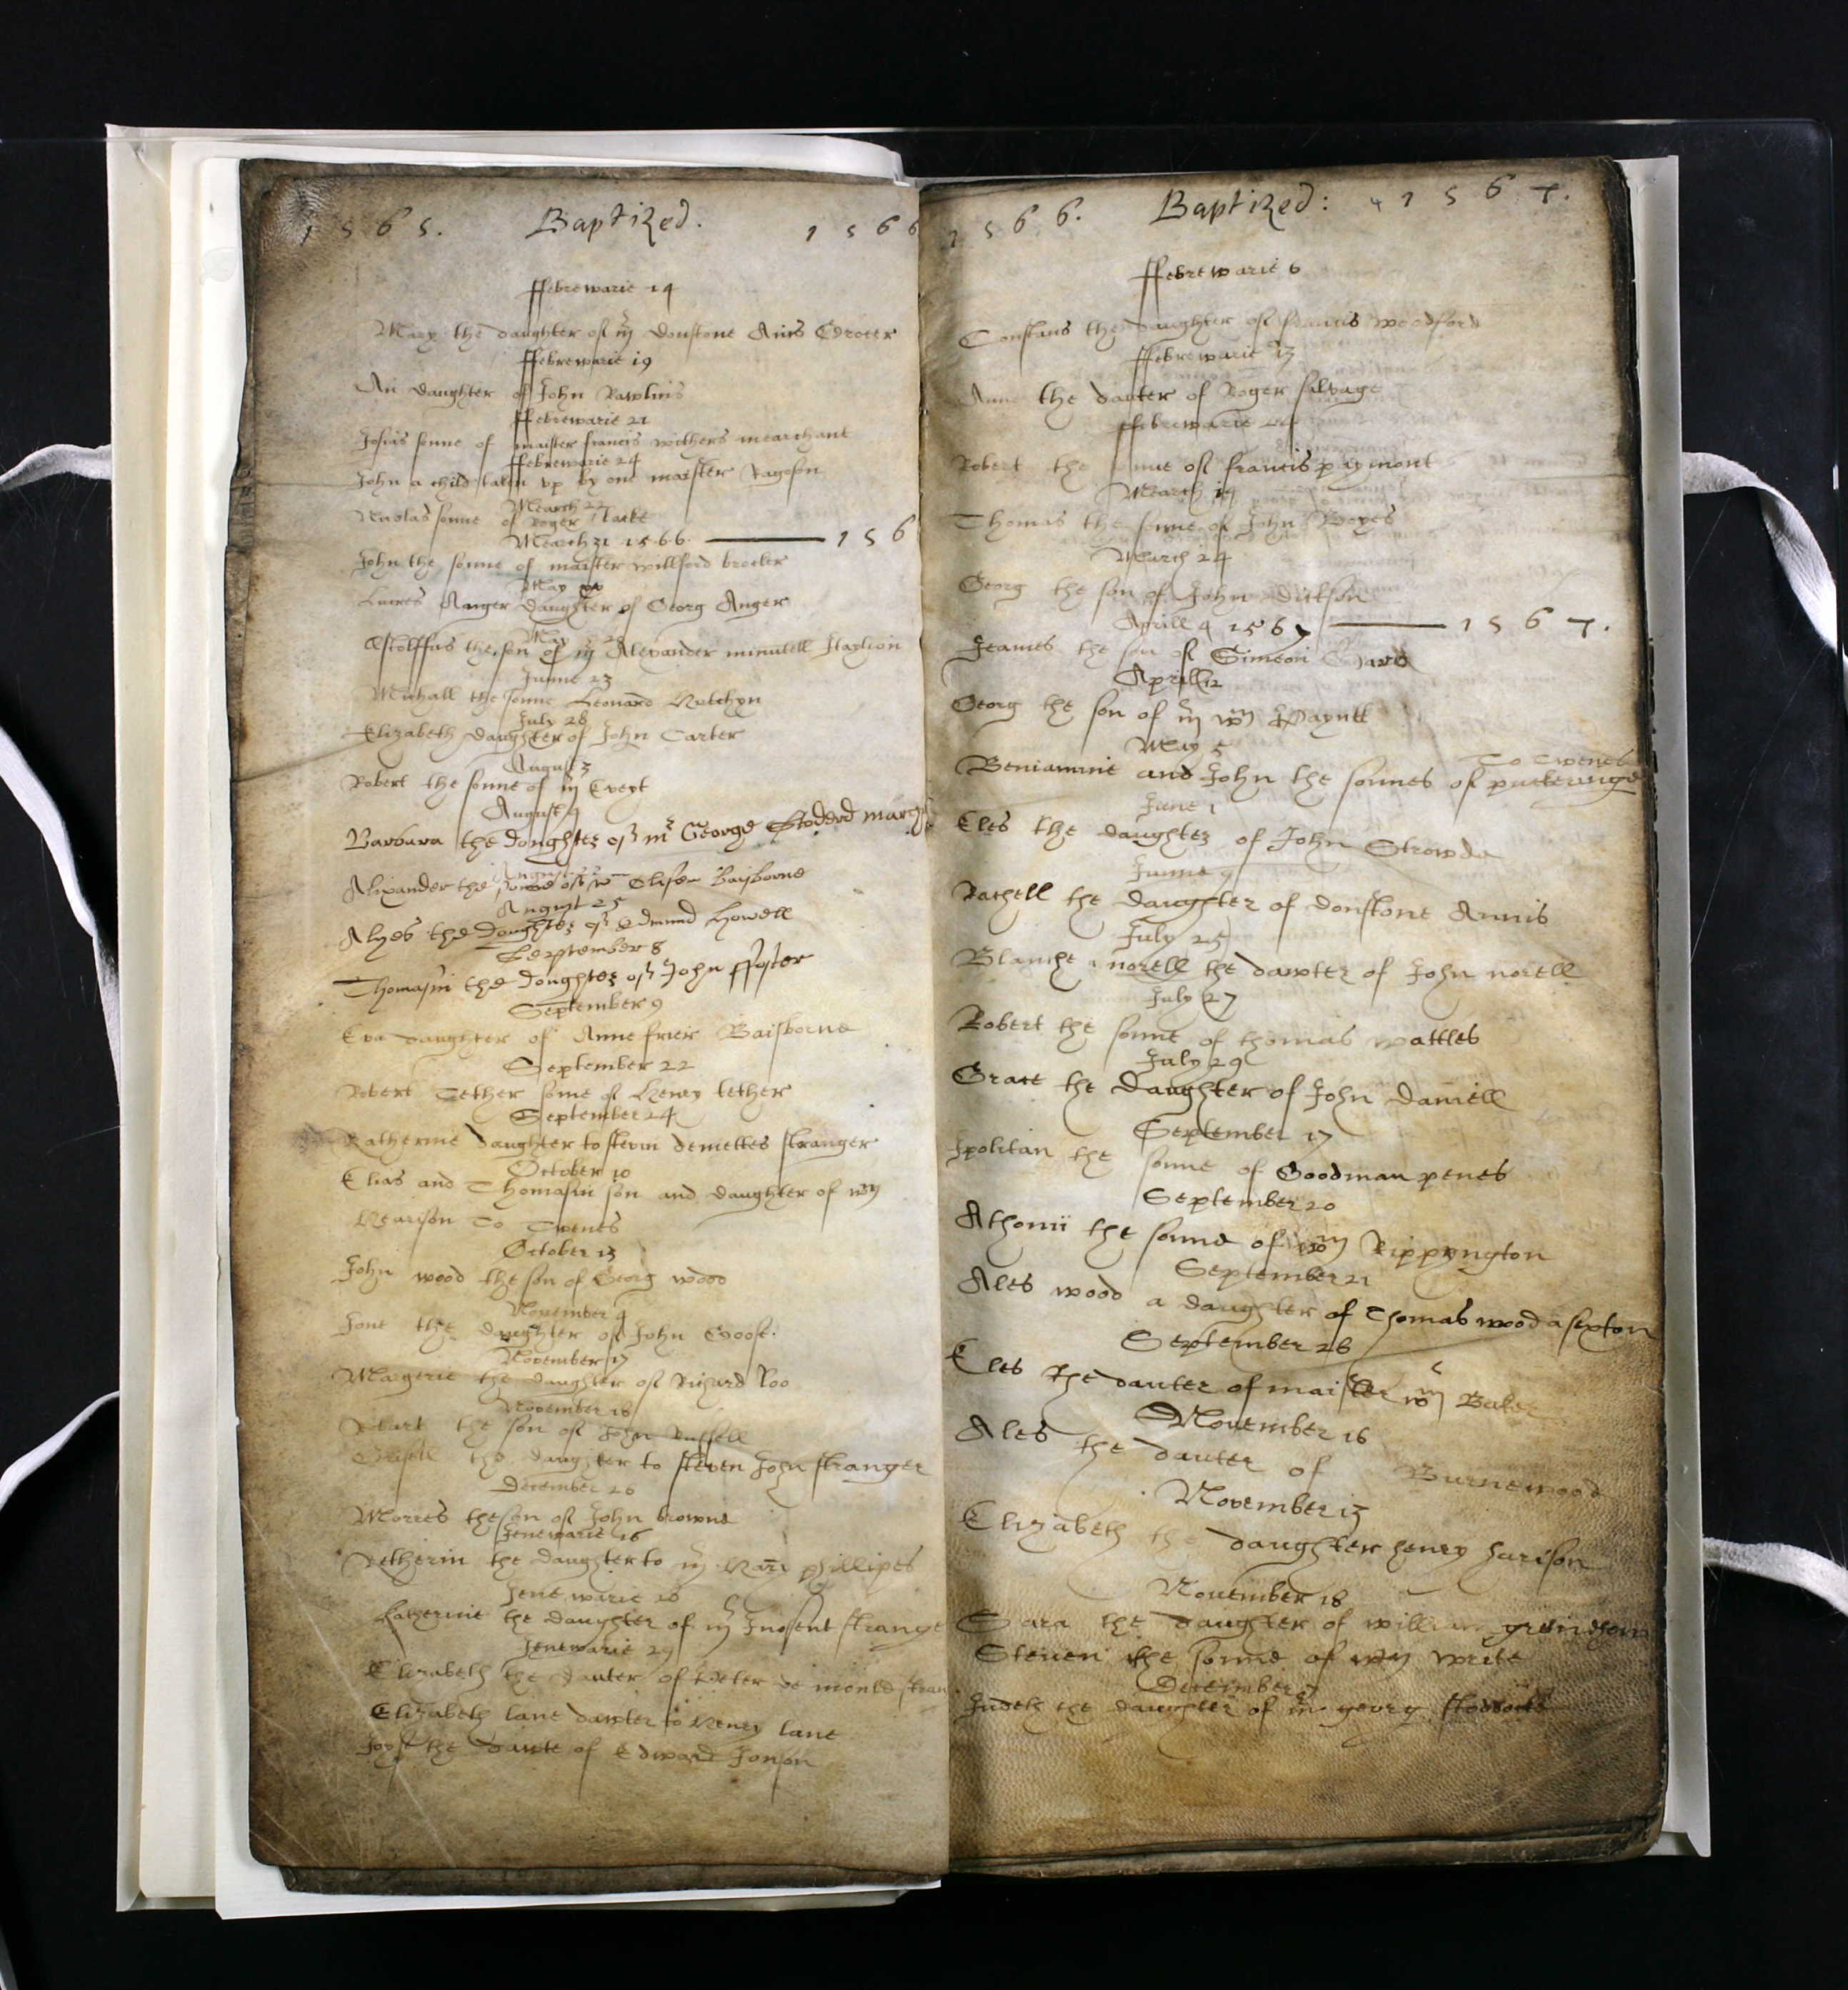 1565. Baptized. 1566
ffebrewarie 14
Mary the daughter of m Donstone Anis Grocer
ffebrewarie 19
An daughter of John Rawlins
ffebrewarie 21
Josias sonne of maister francis withers mearchant
ffebrewarie 24
John a child taken up by one maister
March 22
Nicolas sonne of Roger
March 31 1566 156
John the sonne of maister willford brocker
May
Lucres Aunger daughter of Georg Anger
May
the son of m Alexander minutell Italion
Junne 23
Michall the sonne Leonard
July 28
Elizabeth daughter of John Carter
August 3
Robert the sonne of m
August 4
Barbara the doughter of mr George Stoderd march
August
Alixander the sonne of Baisborne
August 25
Alyes the doughter of Edmund Howell
Septtember 8
Thomasin the doughter of John ffoster
September 9
Eva daughter of Anne frier Baisborne
September 22
Robert Tether sonne of Henry tether
September 24
Katherine daughter to stevin demettes stranger
October 10
Elias and Thomasin son and daughter of wm
Hearison To Twenes
October 13
John wood the son of Georg wood
November 4
Jone the daughter of John Goose.
November 17
Margerie the daughter of Richard Roo
November 18
the son of John Russell
the daughter to steven John stranger
December 26
Morres the son of John browne
Jenewarie 16
Ketherin the daughter to m phillipes
Jenewarie 26
Katherine the daughter of m Inosent strange
Jenewarie 29
Elizabeth the dauter of Peter de
Elizabeth lane dauter to Henry lane
the daute of Edward Jonson
1566. Baptized: 1567.
ffebrewarie 6
Constans the daughter of francis woodford
ffebrewarie 13
Anne the dauter of Roger salvage
ffebrewarie
Robert the sonne of francis
March 19
Thomas the sonne of John Boyes
March 24
Georg the son of John dickson
Aprill 4 1567 1567.
Jeames the son of Simeon
Aprill 12
Georg the son of m wm
May 5
To Twenes
Beniamine and John the sonnes of puckeringe
June 1
Eles the daughter of John Strowde
Junne 9
Rachell the daughter of donstone Annis
July 25
Blanche norell the dawter of John norell
July 27
Robert the sonne of thomas wattles
July 29
Grace the daughter of John Daniell
September 17
Ipolitan the sonne of Goodman penes
September 20
Athonii the sonne of wm Rippyngton
September 21
Ales wood a daughter of Thomas wood a sexton
September 26
Eles the dauter of maister wm Baker
November 16
Ales the dauter of Burnewood
November 17
Elizabeth the daughter henry harison
November 18
Sara the daughter of william
Steven the sonne of wm write
December 7
Judeth the daughter of m georg